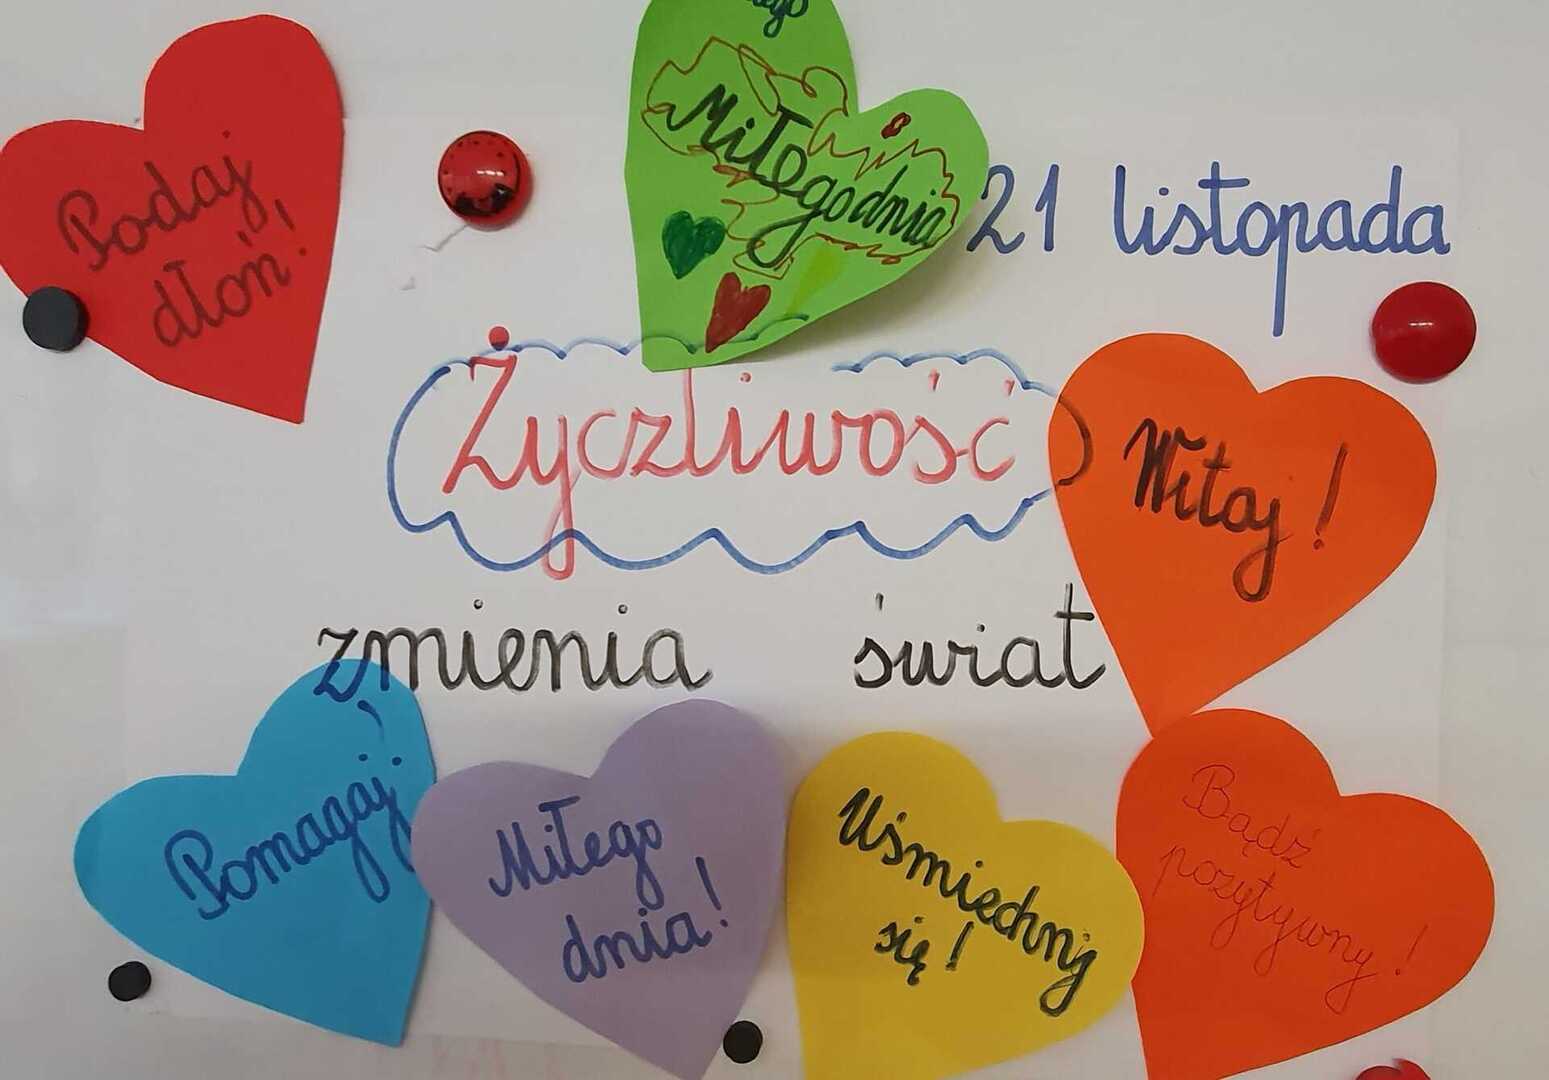 Podaj
dłoń!
Miłego dnia
21 listopada
Życzliwość
zmienia świat
Witaj!
Pomagaj
Miłego
dnia!
Uśmiechnij
się!
Bądź
pozytywny!